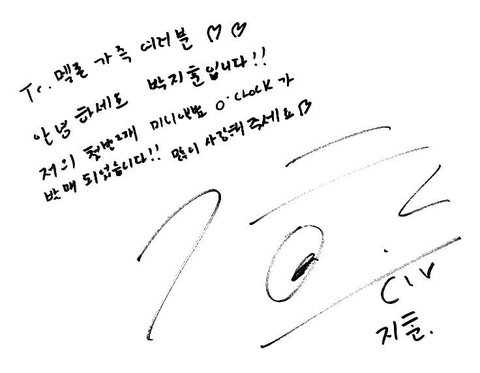 To. 멜론 가족 여러분 ♡♡
안녕하세요 박지훈입니다!!
저의 첫번째 미니앨범 O'CLOCK가
발매 되었습니다!! 많이 사랑해주세요♡
지훈.